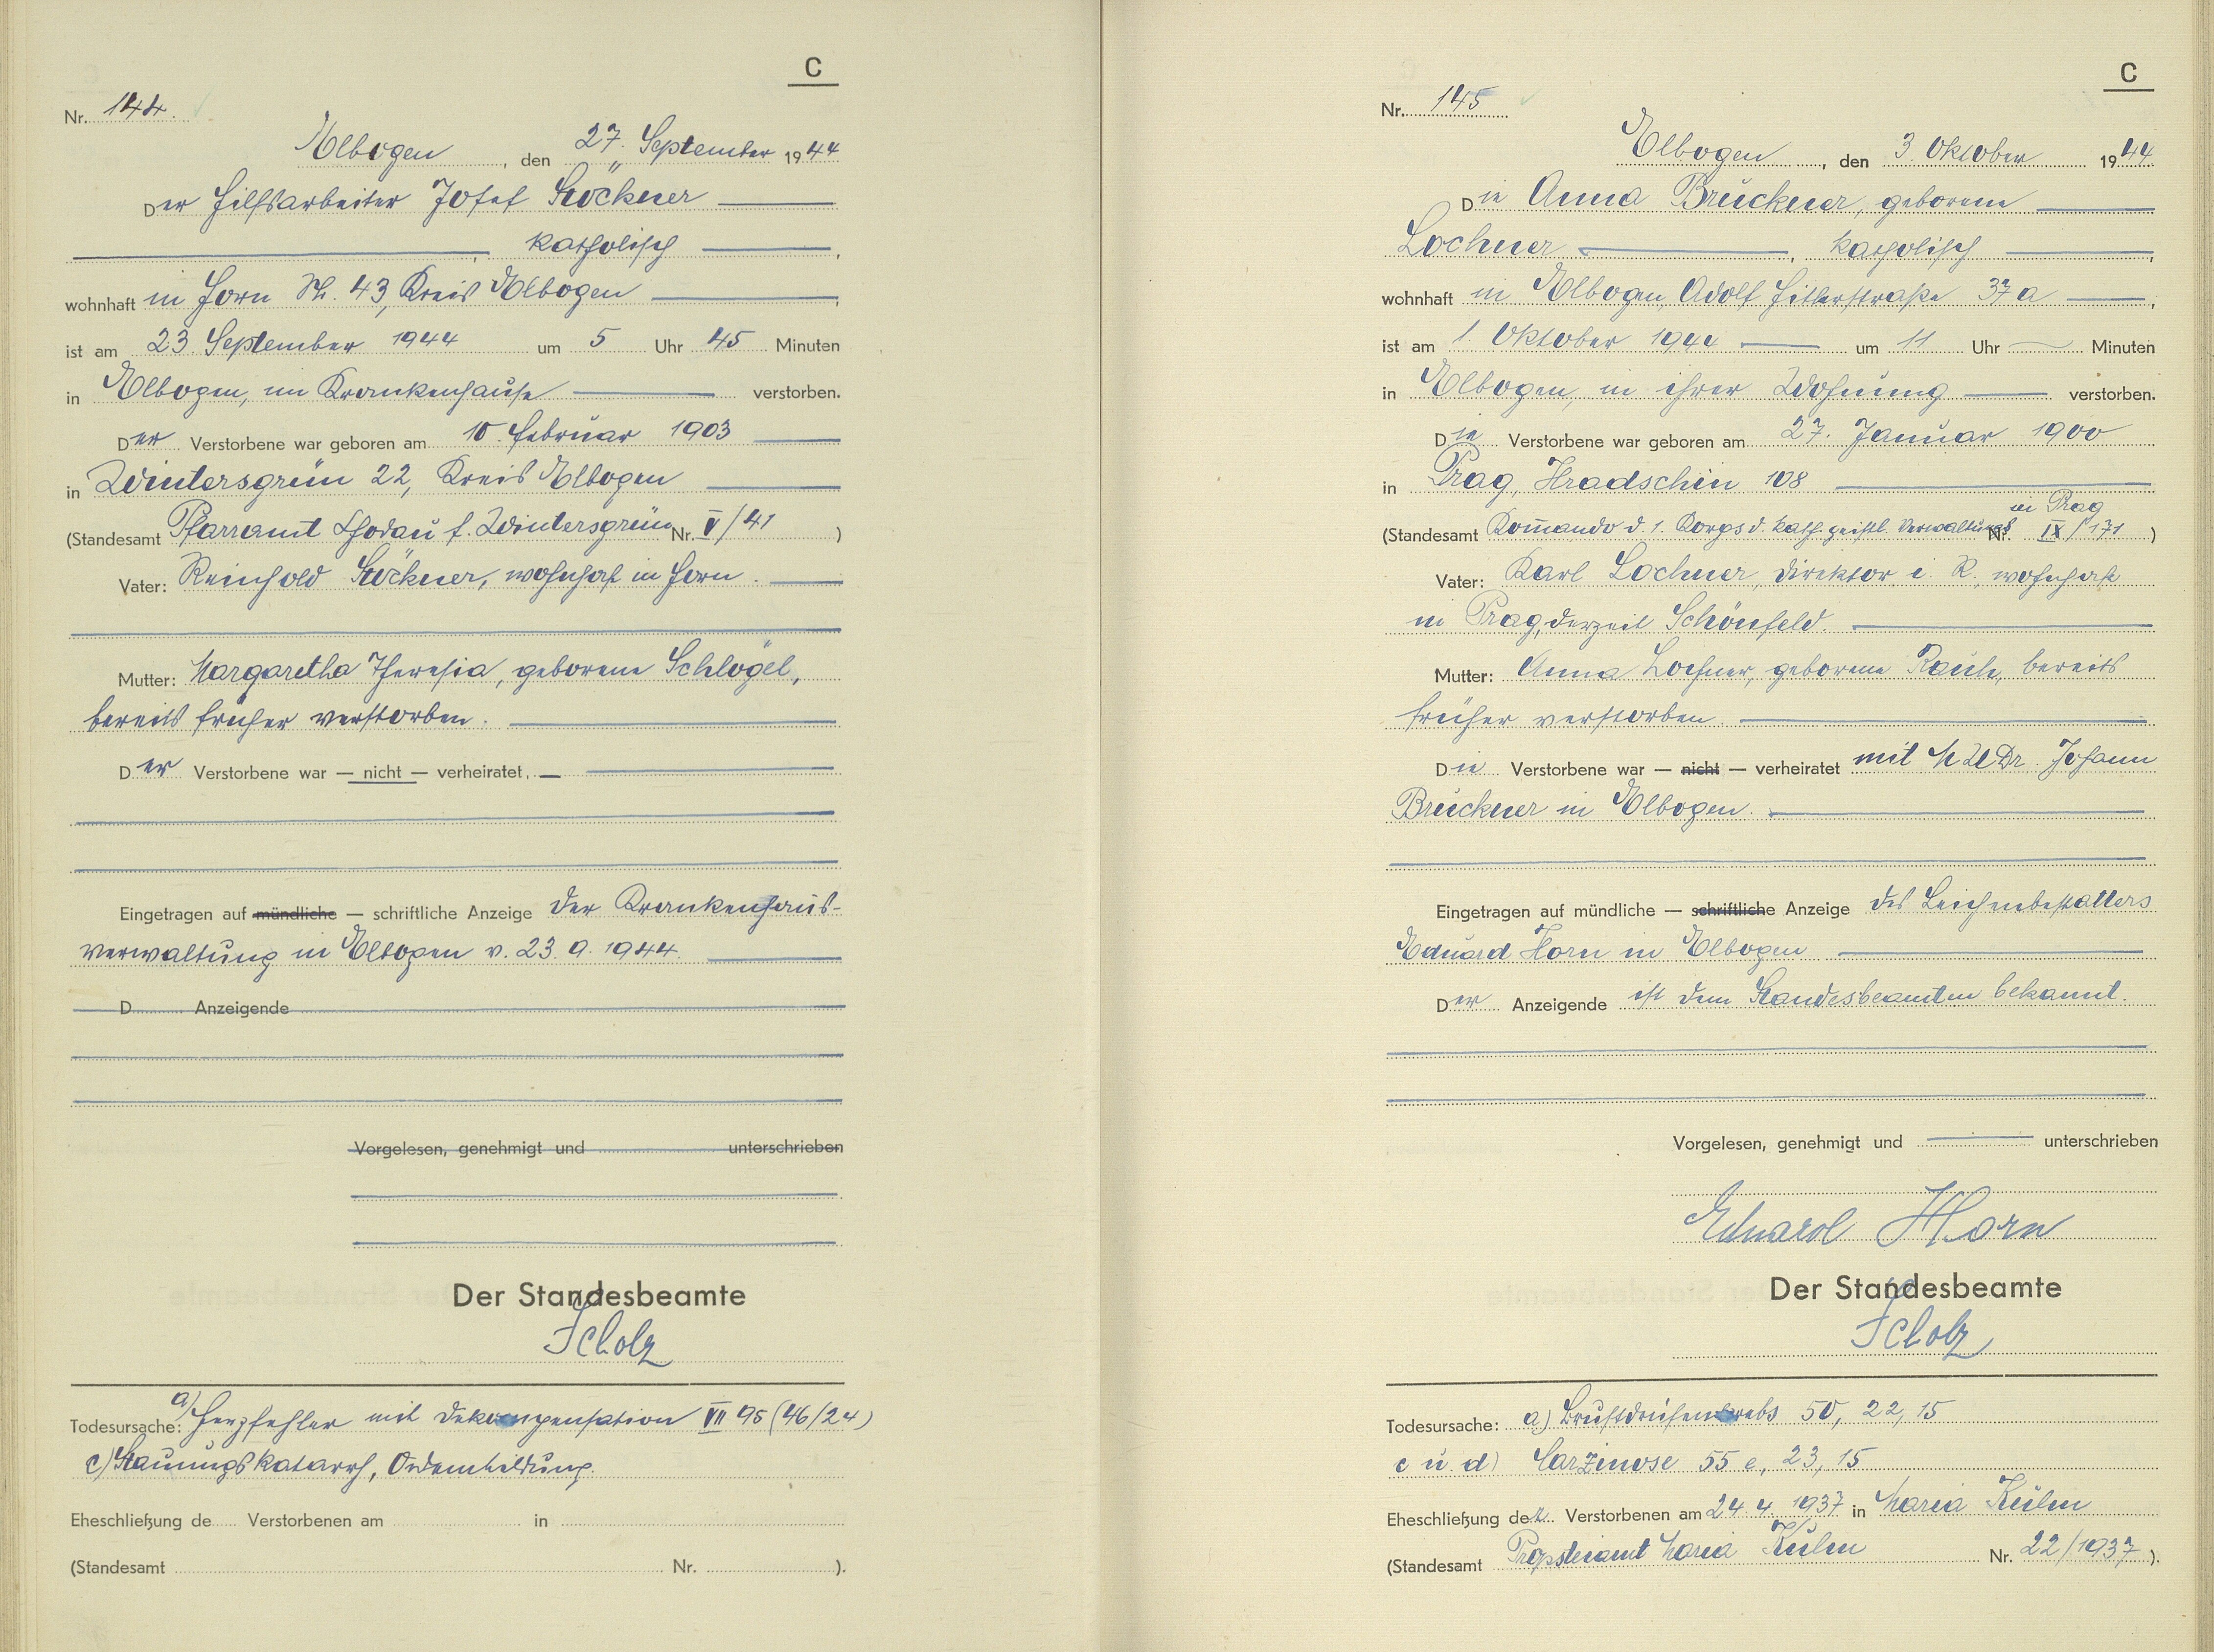 C
Nr. 144.
Elbogen, den 27. September 1944
Der Hilfsarbeiter Josef Stöckner
katholisch
wohnhaft in Horn Nr. 43, Kreis Elbogen
ist am 23 September 1944 um 5 Uhr 45 Minuten
in Elbogen, im Krankenhause verstorben.
Der Verstorbene war geboren am 10. Februar 1903
in Wintersgrün 22, Kreis Elbogen
(Standesamt Pfarramt Chodau f. Wintersgrün Nr. V/41)
Vater: Reinhold Stöckner, wohnhaft in Horn.
Mutter: Margaretha Theresia, geborene Schlögel,
bereits früher verstorben.
Der Verstorbene war — nicht — verheiratet.
Eingetragen auf mündliche — schriftliche Anzeige der Krankenhaus-
verwaltung in Elbogen v. 23. 9. 1944.
D Anzeigende
Vorgelesen, genehmigt und unterschrieben
Der Standesbeamte
Scholz
Todesursache: a) Herzfehler mit Dekompensation VII 95 (46/24)
c) Stauungskatarrh, Ödembildung.
Eheschließung de Verstorbenen am in
(Standesamt Nr. ).
C
Nr. 145
Elbogen, den 3. Oktober 1944
Die Anna Brückner, geborene
Lochner, katholisch,
wohnhaft in Elbogen, Adolf Hitlerstraße 37a,
ist am 1. Oktober 1944 um 11 Uhr Minuten
in Elbogen, in ihrer Wohnung verstorben.
Die Verstorbene war geboren am 27. Januar 1900
in Prag, Hradschin 108
in Prag
(Standesamt Komando d. 1. Korps d. kath. geistl. Verwaltung Nr. IX/171)
Vater: Karl Lochner, Direktor i. R., wohnhaft
in Prag, derzeit Schönfeld.
Mutter: Anna Lochner, geborene Rauh, bereits
früher verstorben.
Die Verstorbene war — nicht — verheiratet mit MUDr. Johann
Brückner in Elbogen.
Eingetragen auf mündliche — schriftliche Anzeige des Leichenbestatters
Eduard Horn in Elbogen
Der Anzeigende ist dem Standesbeamten bekannt.
Vorgelesen, genehmigt und unterschrieben
Eduard Horn
Der Standesbeamte
Scholz
Todesursache: a) Brustdrüsenkrebs 50, 22, 15
c u. d) Carzinose 55 e, 23, 15
Eheschließung der Verstorbenen am 24. 4. 1937 in Maria Kulm
(Standesamt Propsteiamt Maria Kulm Nr. 22/1937).